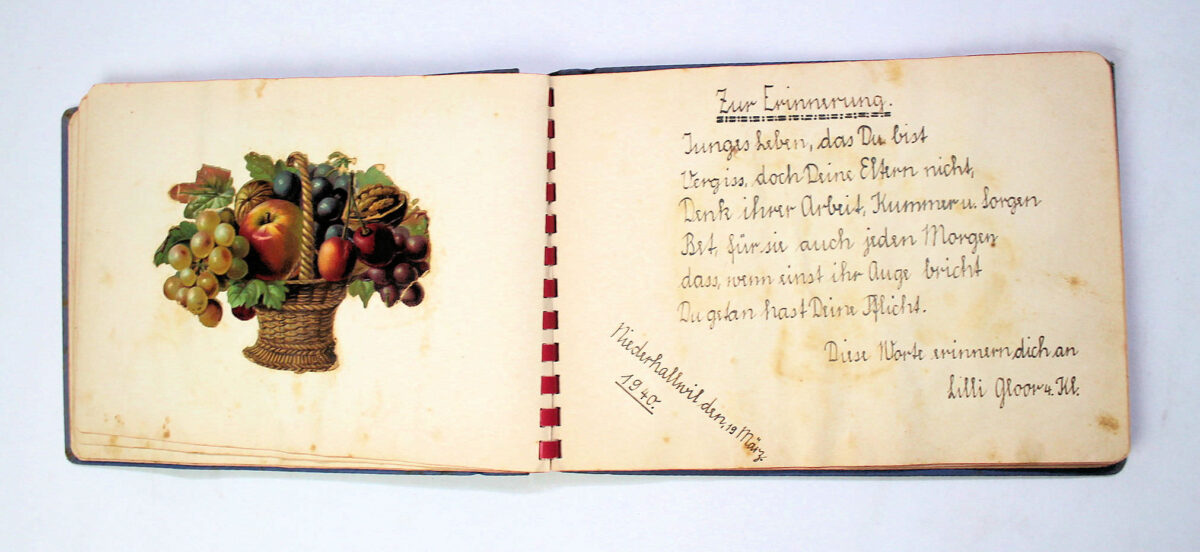 Zur Erinnerung.
Junges Leben, das Du bist
Vergiss, doch Deine Eltern nicht,
Denk ihrer Arbeit, Kummer u. Sorgen
Bet, für sie auch jeden Morgen
dass, wenn einst ihr Auge bricht
Du getan hast Deine Pflicht.
Diese Worte erinnern dich an
Lilli Gloor 4. Kl.
Niederhallwil den, 19 März.
1940.